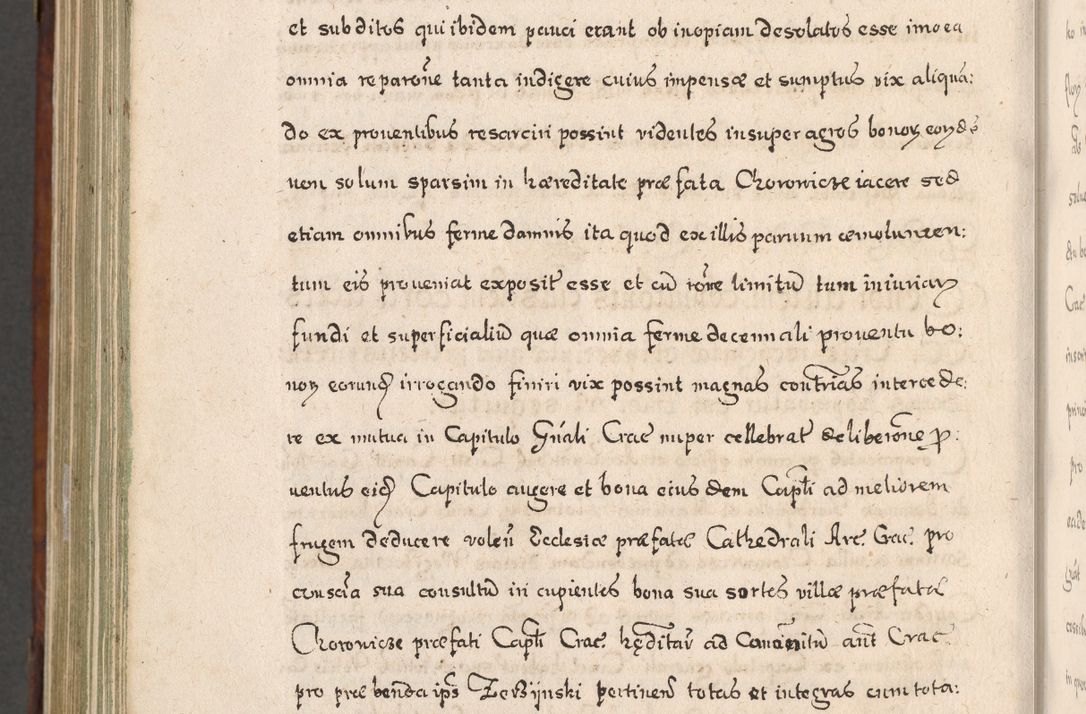 et subditos qui ibidem pauci erant ob inopiam desolatos esse imo ea
omnia reparoñe tanta indigere cuius impensæ et sumptus vix aliqua:
do ex prouentibus resarciri possint videntes insuper agros bonoꝝ eoꝝdē
non solum sparsim in hæreditate præfata Choronicze iacere sed
etiam omnibus ferme damnis ita quod ex illis paruum æmolumen:
tum eis proueniat exposit esse et cū roñe limitū tum iniuriaꝝ
fundi et superficialiū quæ omnia ferme decennali prouentu bo:
noꝝ eorund irrogando finiri vix possint magnas contrias intercede:
re ex mutua in Capitulo Gñali Crac nuper cellebrat deliberoñe p:
uentus eid Capitulo augere et bona eius dem Capli ad meliorem
frugem deducere voleñ Ecclesiæ præfatæ Cathedrali Are. Grac. pro
conscia sua consultū iri cupientes bona sua sortes villæ præfatæ
Choronicze præfati Capli Crac. hęditar ad Canonitū ant Crac
pro præbenda ips Zebzijnski pertineñ totas et integras cum tota: